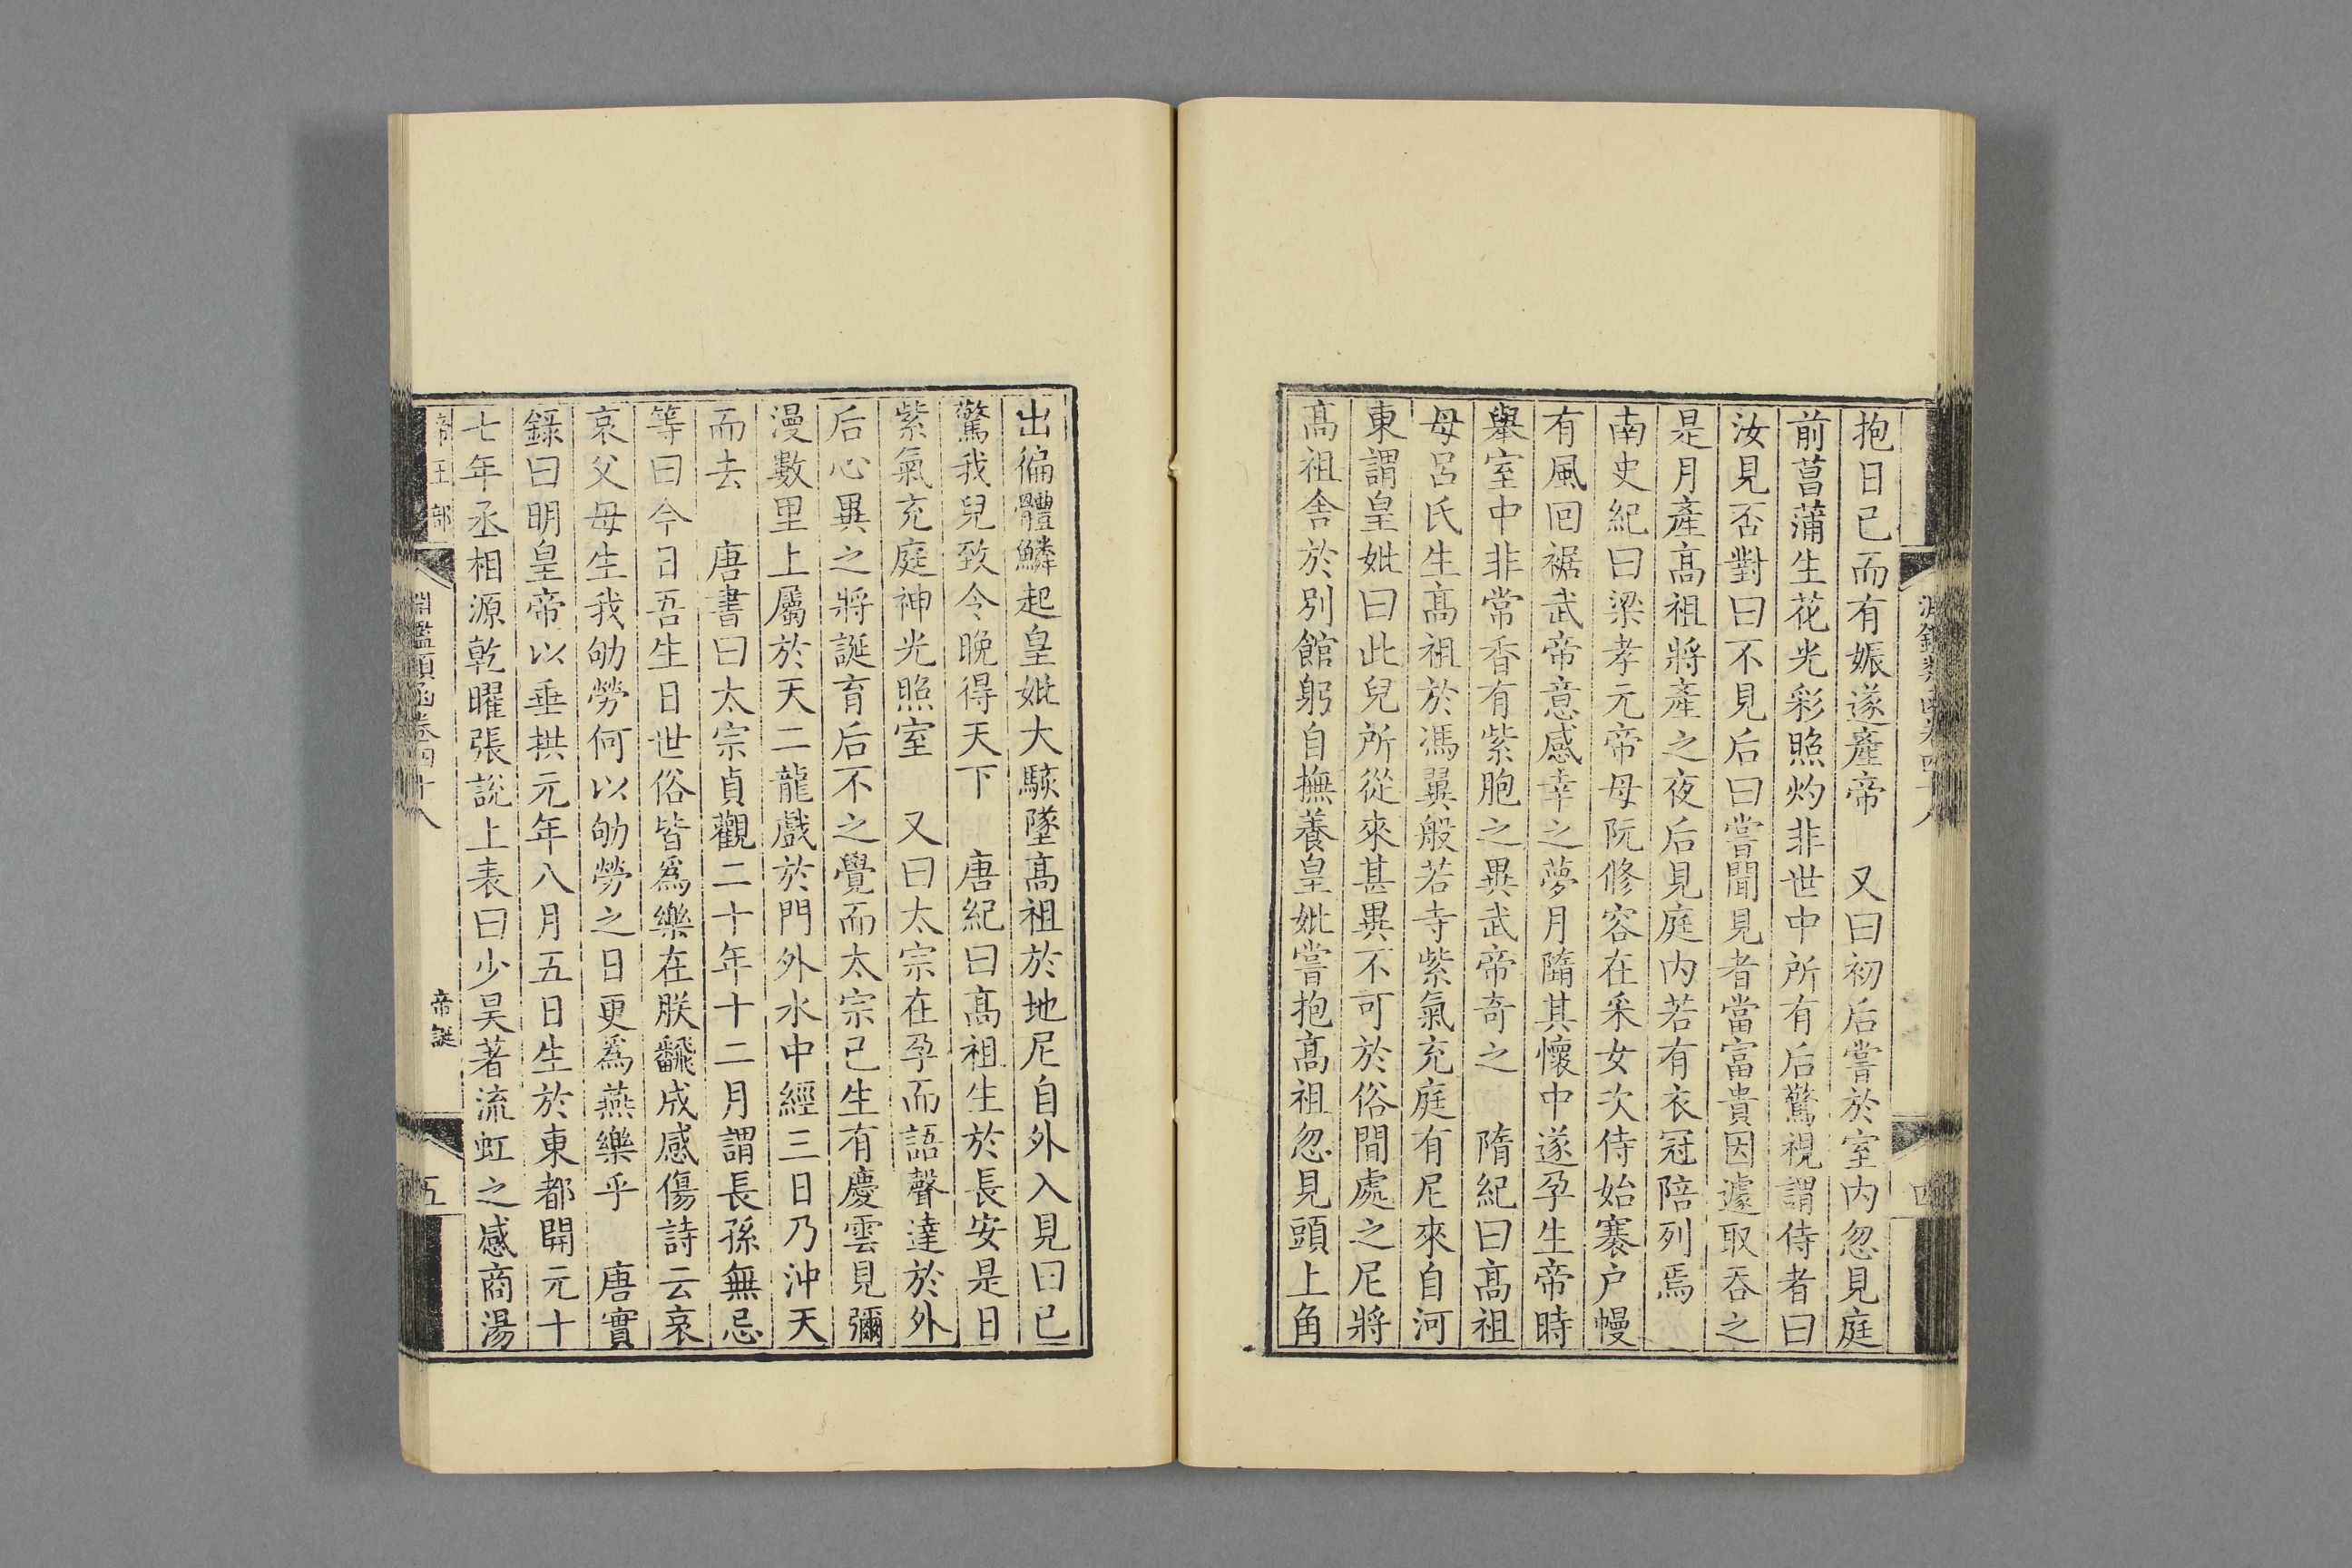 抱日已而有娠遂產帝　又曰初后嘗於室内忽見庭
前菖蒲生花光彩照灼非世中所有后驚視謂侍者曰
汝見否對曰不見后曰嘗聞見者當富貴因遽取吞之
是月產髙祖將產之夜后見庭内若有衣冠陪列焉
南史紀曰梁孝元帝母阮修容在采女次侍始褰户幔
有風回裾武帝意感幸之夢月墮其懷中遂孕生帝時
舉室中非常香有紫胞之異武帝奇之　隋紀曰髙祖
母呂氏生髙祖於馮翼般若寺紫氣充庭有尼來自河
東謂皇妣曰此兒所從來甚異不可於俗間處之尼將
髙祖舍於別館躬自撫養皇妣嘗抱髙祖忽見頭上角
出徧體鱗起皇妣大駭墜髙祖於地尼自外入見曰已
驚我兒致令晚得天下　唐紀曰髙祖生於長安是日
紫氣充庭神光照室　又曰太宗在孕而語聲達於外
后心異之將誕育后不之覺而太宗已生有慶雲見彌
漫數里上屬於天二龍戲於門外水中經三日乃沖天
而去　唐書曰太宗貞觀二十年十二月謂長孫無忌
等曰今日吾生日世俗皆爲樂在朕翻成感傷詩云哀
哀父母生我劬勞何以劬勞之日更爲燕樂乎　唐實
錄曰明皇帝以垂拱元年八月五日生於東都開元十
七年丞相源乾曜張說上表曰少昊著流虹之感商湯
帝王部
淵鑑類函卷四十八
帝誕
五